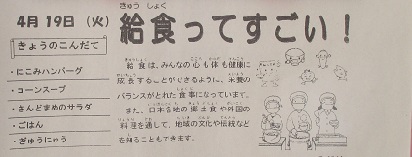 4月 19日 (火)
きょうのこんだて
・にこみハンバーグ
・コーンスープ
・きんときまめのサラダ
・ごはん
・ぎゅうにゅう
きゅう しょく
給食ってすごい!
給食は、みんなの心も体も健康に
成長することができるように、栄養の
バランスがとれた食事になっています。
また、日本各地の郷土食や外国の
料理を通して、地域の文化や伝統など
を知ることもできます。